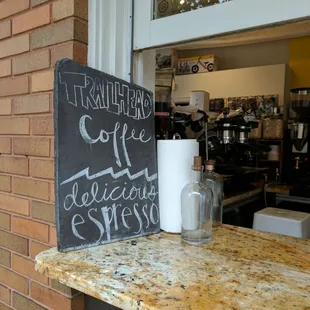 TRAILHEAD
Coffee
delicious
espresso